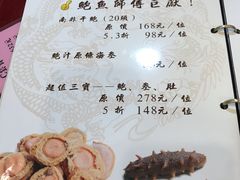 鮑魚師傅巨獻！
南非平鮑（20頭）
原價 168元／位
5.3折 98元／位
鮑汁原條海參
超值三寶——鮑、參、肚
原價 278元／位
5折 148元／位